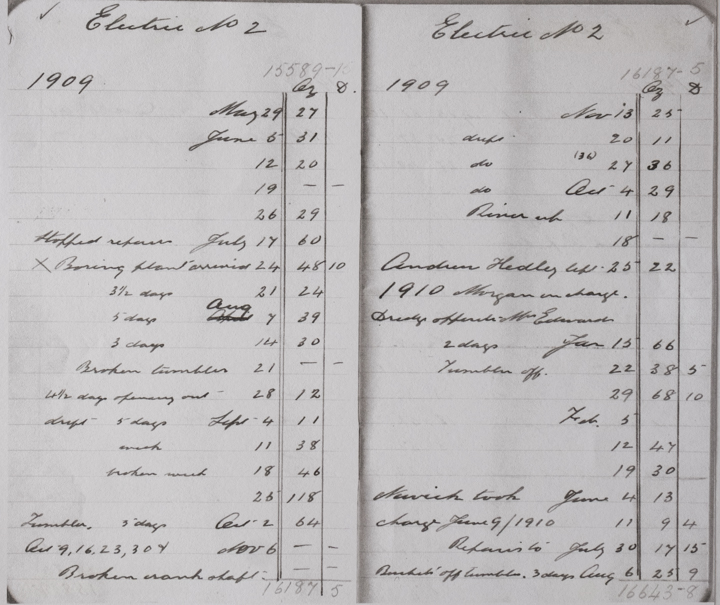 Electric No 2
15589-1
1909 Oz D
May 29 27
June 5 31
12 20
19 – –
26 29
Stopped repairs July 17 60
X Boring plant arrived 24 48 10
3½ days 21 24
Aug
5 days 7 39
3 days 14 30
Broken tumbler 21 – –
4½ days opening out 28 12
drift 5 days Sept 4 11
week 11 38
broken week 18 46
25 118
Tumbler. 5 days Oct 2 64
Oct 9, 16, 23, 30 & Nov 6 – –
Broken crank shaft – – –
16187 5
Electric No 2
16187-5
1909 Oz D
Nov 13 25
drift 20 11
do (36) 27 36
do 4 29
River up 11 18
18 – –
Andrew Hedley left 25 22
1910 Morgan in charge.
Dredge opposite Mrs Edwards
2 days Jan 15 66
Tumbler off. 22 38 5
29 68 10
Feb. 5
12 47
19 30
took June 4 13
charge June 9/1910 11 9 4
Repairs to July 30 17 15
Buckets off tumbler. 3 days Aug 6 25 9
16643-8